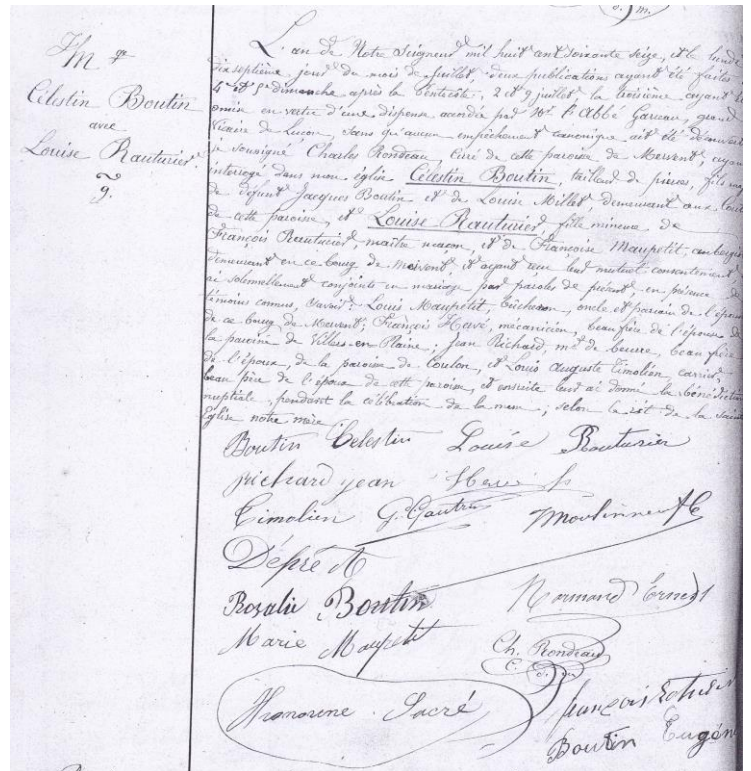 Mge
Célestin Boutin
avec
Louise Rauturier
9.
L'an de Notre Seigneur mil huit cent soixante seize, et le lundi
dix septième jour du mois de juillet, deux publications ayant été faites
4e et 5e dimanche après la Pentecôte, 2 et 9 juillet, la troisième ayant été
omise en vertu d'une dispense accordée par Mr l'Abbé Garreau, grand
Vicaire de Luçon, sans qu'aucun empêchement canonique ait été découvert
je soussigné Charles Rondeau, curé de cette paroisse de Mervent, ayant
interrogé dans mon église Célestin Boutin, tailleur de pierres, fils maj
de défunt Jacques Boutin et de Louise Millet, demeurant aux
de cette paroisse, et Louise Rauturier, fille mineure de
François Rauturier, maître maçon, et de Françoise Maupetit, aubergis
demeurant en ce bourg de Mervent, et ayant reçu leur mutuel consentement,
ai solennellement conjoints en mariage par paroles de présent en présence de
témoins connus, savoir: Louis Maupetit, bûcheron, oncle et parrain de l'épouse
de ce bourg de Mervent; François Hervé, mécanicien, beau frère de l'épouse de
la paroisse de Villiers en Plaine; Jean Richard, md de beurre, beau frère
de l'époux, de la paroisse de Coulon, et Louis Auguste Timolien, carrier,
beau père de l'époux de cette paroisse, et ensuite leur ai donné la bénédiction
nuptiale, pendant la célébration de la messe, selon le rit de la Sainte
Eglise notre mère
Boutin Celestin Louise Routurier
Richard jean
Timolien G. Gautru Moulinneuf
Dépré
Rosalie Boutin Normand Ernest
Marie Maupetit Ch. Rondeau
Honorine Sacré François
Boutin Eugén